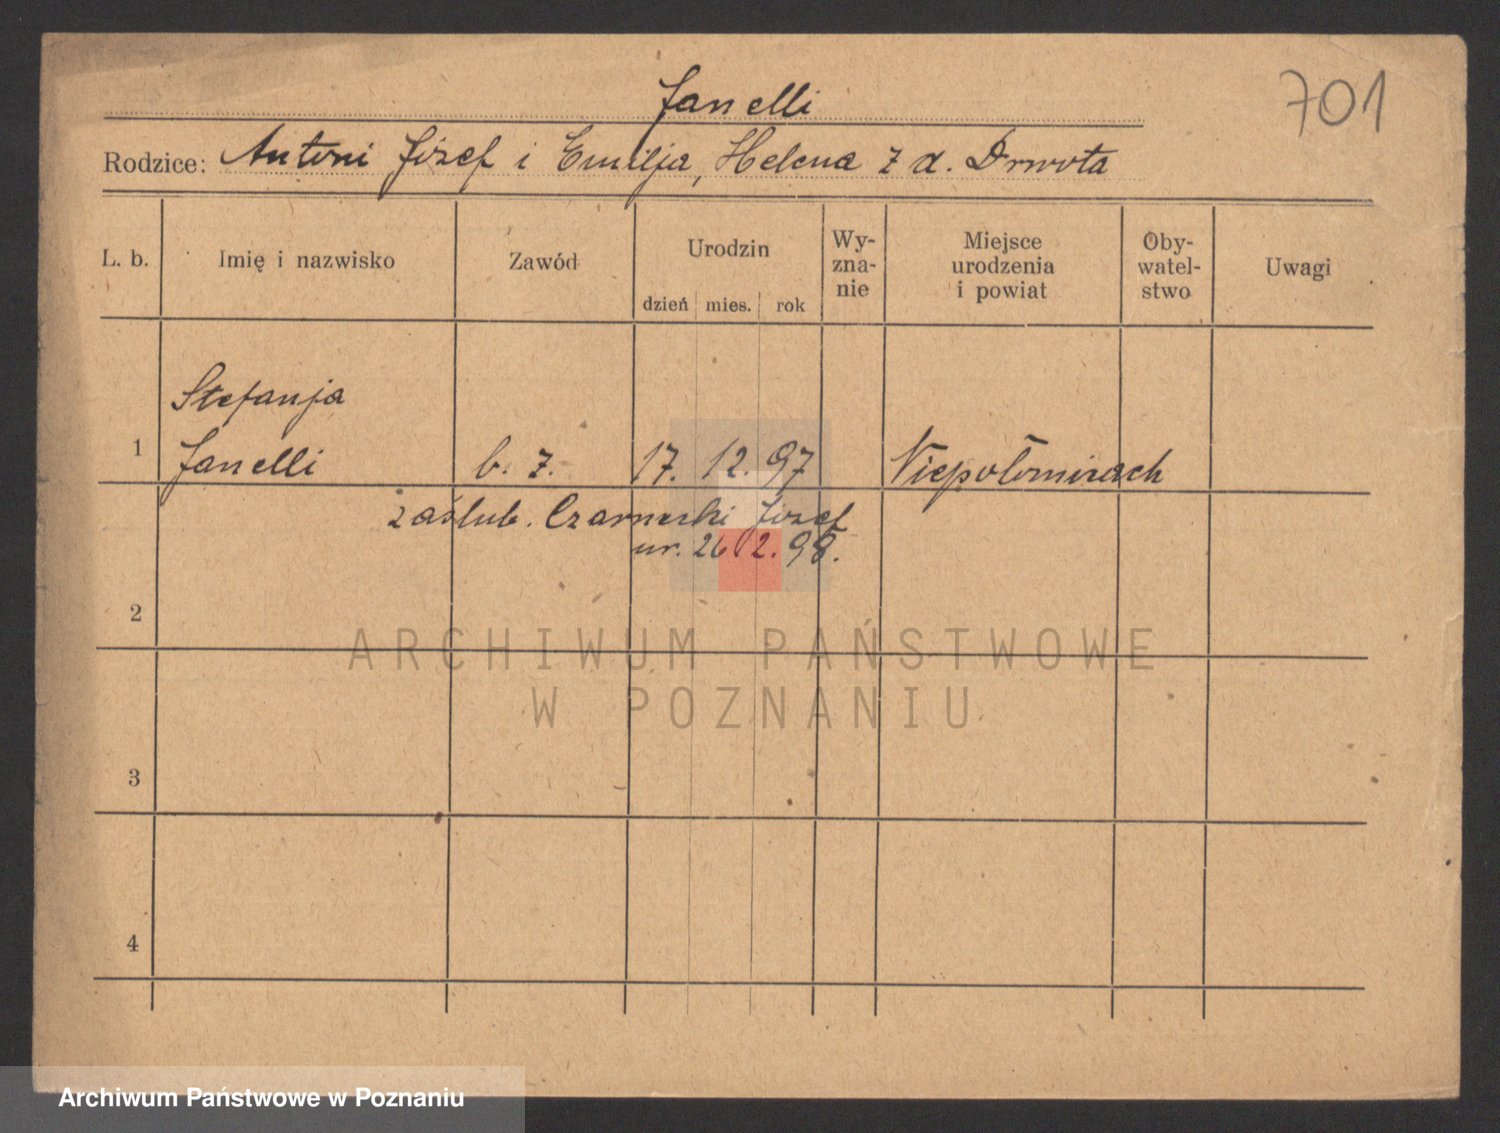 Janelli
701
Rodzice: Antoni Józef i Emilja, Helena z d. Drwota
L. b. Imię i nazwisko Zawód Urodzin dzień mies. rok Wy-zna-nie Miejsce urodzenia i powiat Oby-watel-stwo Uwagi
Stefanja
1 Janelli b. z. 17. 12. 97 Niepołomicach
zaślub. Czarnecki Józef
ur. 26 2. 98.
2
3
4
ARCHIWUM PAŃSTWOWE
W POZNANIU
Archiwum Państwowe w Poznaniu